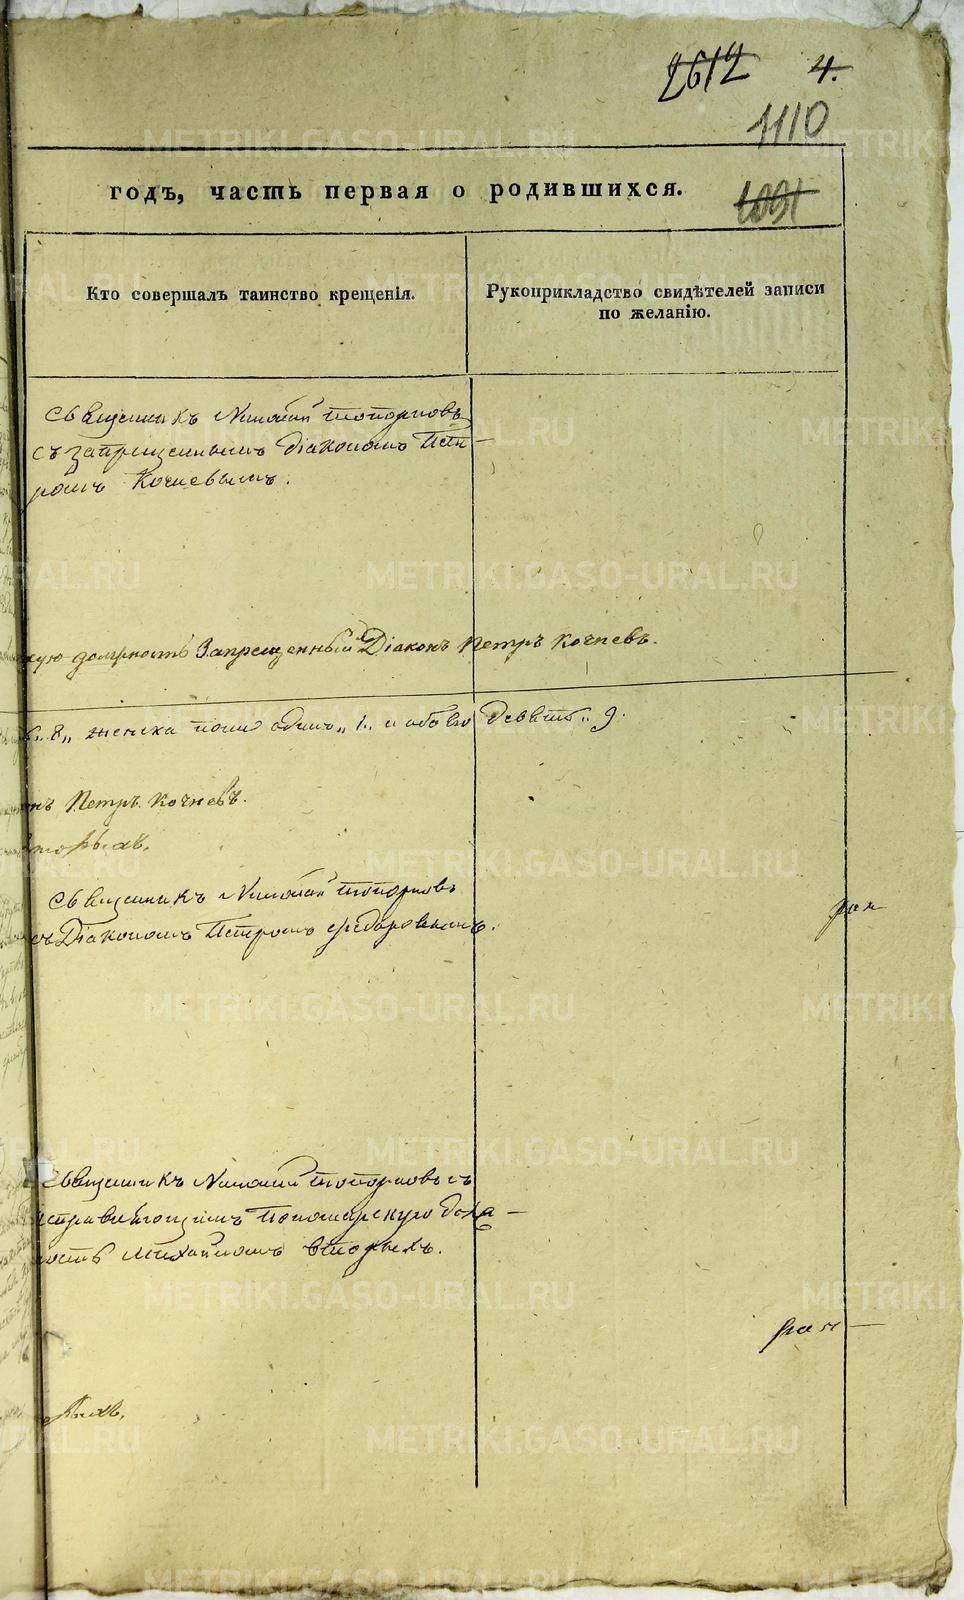 2612 4.
1110
годъ, часть первая о родившихся.
Кто совершалъ таинство крещенія.
Рукоприкладство свидѣтелей записи
по желанію.
Священникъ Николай Топорковъ
съ запрещеннымъ Діакономъ Пет-
ромъ Кочневымъ.
скую должность Запрещенный Діаконъ Петръ Кочневъ.
8„ женска пола одинъ„ 1„ и обоего девять„ 9.
нъ Петръ Кочневъ.
Вторыхъ.
Священникъ Николай Топорковъ
съ Діакономъ Петромъ
Священникъ Николай Топорковъ съ
исправляющимъ Пономарскую долж-
ность Михайломъ Вторыхъ.
рыхъ.
METRIKI.GASO-URAL.RU